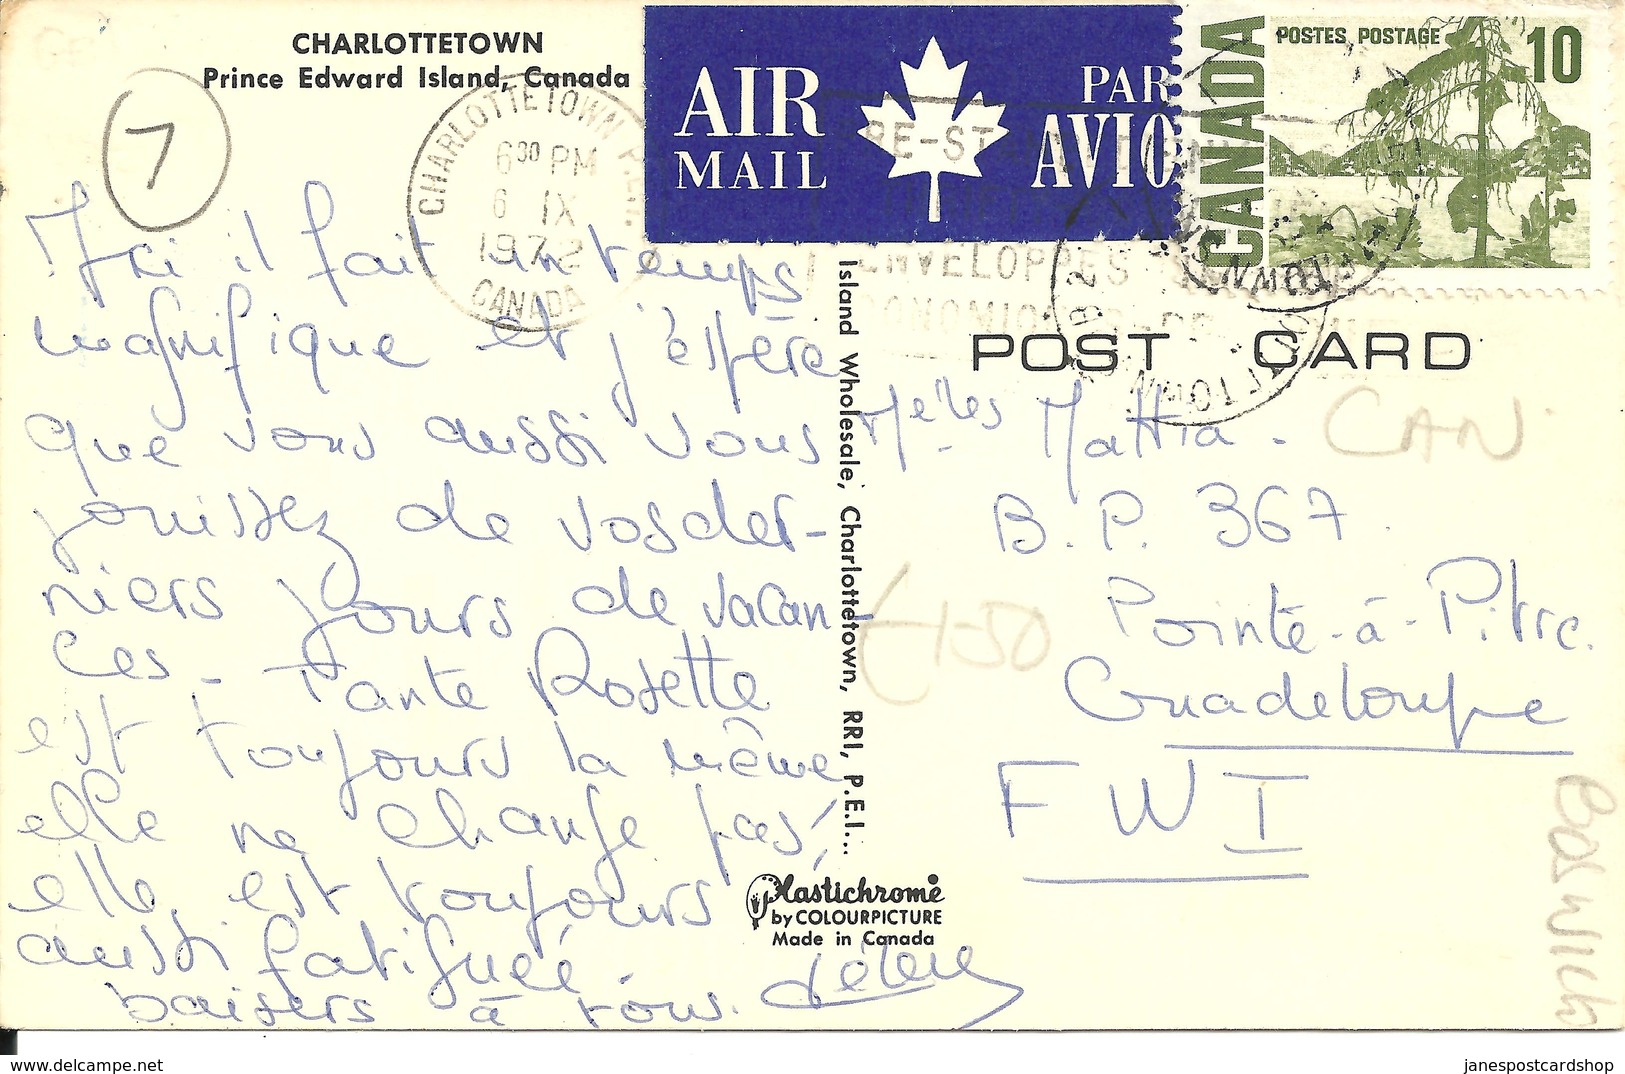 CHARLOTTETOWN
Prince Edward Island, Canada
7
CHARLOTTETOWN P.E.I.
6 30 PM
6 IX
1972
CANADA
AIR MAIL
PAR AVION
CANADA
POSTES POSTAGE 10
ENVELOPPES
POST CARD
Ici il fait un temps
magnifique et j'espère
que vous aussi vous
jouissez de vos der-
niers jours de vacan-
ces - Tante Rosette
est toujours la même
elle ne change pas,
elle est toujours
aussi fatiguée.
baisers à tous.
Island Wholesale, Charlottetown, RR1, P.E.I...
Plastichrome
by COLOURPICTURE
Made in Canada
Melles Mattia.
B.P. 367.
Pointe-à-Pitre.
Guadeloupe
F W I
CAN
£1-50
janespostcardshop
www.delcampe.net